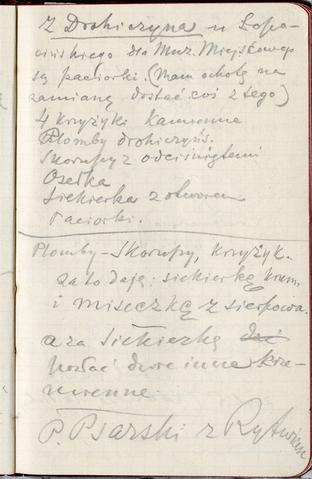 Z Drohiczyna u Łopa-
cińskiego dla Muz. Miejskowego
są paciorki. (Mam ochotę na
zamianę dostać coś z tego)
4 Krzyżyki Kamienne
Plomby drohiczyńs.
Skorupy z odciśniętemi
Osełka
Siekierka z otworem
Paciorki.
Plomby – Skorupy, krzyżyk.
za to dają: siekierkę krzem.
i miseczkę z sierpowa.
a za siekierkę
posłać dwie inne krze-
mienne
P. Psarski z